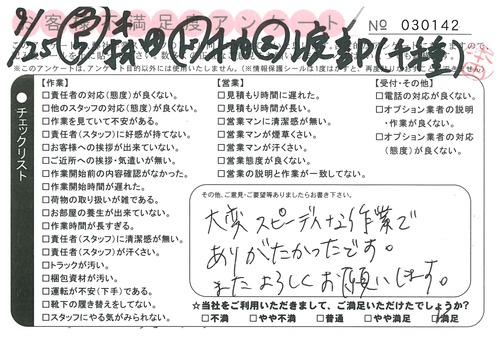 お客様不満足度アンケート
No 030142
※このアンケートは、アンケート目的以外には使用いたしません。
【作業】
□責任者の対応(態度)が良くない。
□他のスタッフの対応(態度)が良くない。
□作業を見ていて不安がある。
□責任者(スタッフ)に好感が持てない。
□お客様への挨拶が出来ていない。
□ご近所への挨拶・気遣いが無い。
□作業開始前の内容確認がなかった。
□作業開始時間が遅れた。
□荷物の取り扱いが雑である。
□お部屋の養生が出来ていない。
□作業時間が長すぎる。
□責任者(スタッフ)に清潔感が無い。
□責任者(スタッフ)が汗くさい。
□トラックが汚い。
□梱包資材が汚い。
□運転が不安(下手)である。
□靴下の履き替えをしてない。
□スタッフにやる気がみられない。
【営業】
□見積もり時間に遅れた。
□見積もり時間が長い。
□営業マンに清潔感が無い。
□営業マンが煙草くさい。
□営業マンが汗くさい。
□営業態度が良くない。
□営業の説明と作業が一致してない。
【受付・その他】
□電話の対応が良くない。
□オプション業者の説明
・作業が良くない。
□オプション業者の対応
(態度)が良くない。
チェックリスト
その他、ご意見・ご要望等ありましたらお書き下さい。
大変スピーディな作業で
ありがたかったです。
またよろしくお願いします。
☆当社をご利用いただきまして、ご満足いただけたでしょうか?
□不満 □やや不満 □普通 □やや満足 □満足